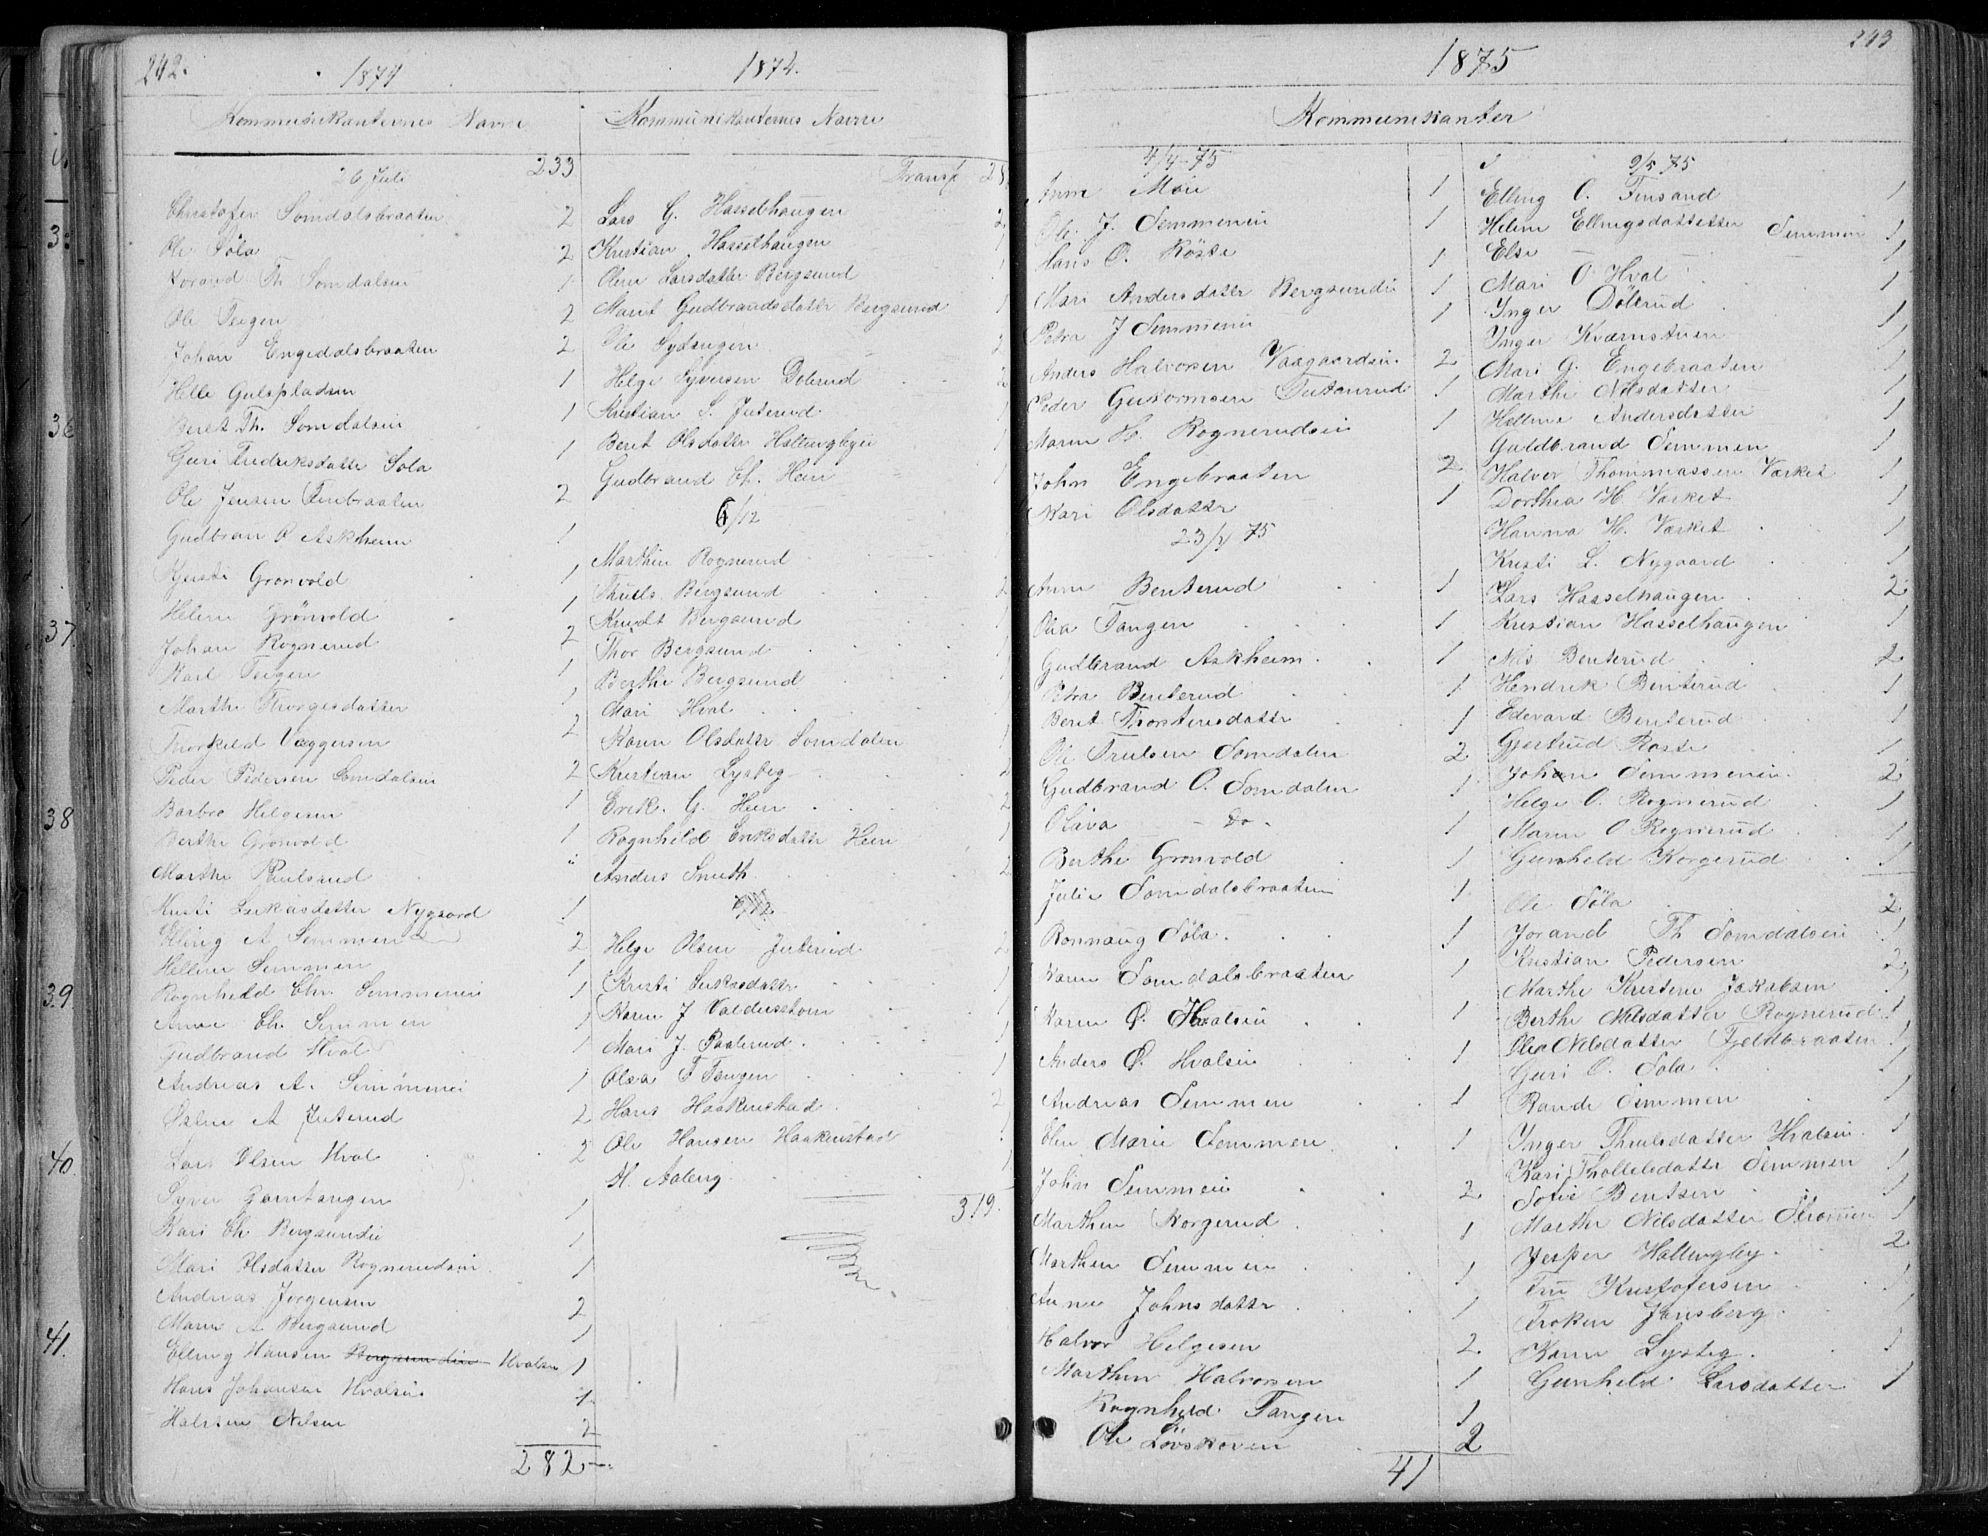 242.
1874
Kommunikanternes Navne
26 Juli 233
Christofer Somdalsbraaten 2
Ole Söla 2
Jorand Th Somdalen 1
Ole Teigen 2
Johan Engedalsbraaten 2
Helle Gulspladsen 1
Beret Th. Somdalen 1
Guri Fredriksdatter Sola 1
Ole Jensen Finbraaten 2
Gudbran O Askheim 1
Kjersti Grönvold 1
Helene Grönvold 1
Johan Rognerud 2
Karl Teigen 1
Marthe Thorgesdatter 1
Thorkild Væggersen 2
Peder Pedersen Somdalen 2
Barbro Helgesen 1
Berthe Grönvold 1
Marthe Paulsrud "
Kristi Lukasdatter Nygaard 1
Elling A Semmen 2
Hellene Semmen 1
Rognhild Chr. Semmeneie 1
Anne Ch. Semmen 1
Gudbrand Hval 1
Andreas A. Semmeneie 1
Östen A Juterud 2
Lars Olsen Hval 2
Syver Garntangen 1
Kari Ch Bergsundeie 1
Mari Olsdatter Rognerudeie 1
Andreas Jörgensen 2
Maren A Bergsund 1
Elling Hansen Bergsundeie Hvalseie 1
Hans Johansen Hvalseie 1
Halvor Nilsen 2
282
1874.
Kommunikanternes Navne
Transp 28
Lars G. Hasselhaugen 2
Kristian Hasselhaugen 1
Olene Larsdatter Bergsund 1
Marit Gudbrandsdatter Bergsund 1
Ole Sydtangen 2
Helge Syversen Dölerud 2
Kristian S. Juterud 1
Beret Olsdatter Hallingbyeie 1
Gudbrand Ch. Hein 1
6/12
Marthin Rognerud 1
Truls Bergsund 2
Knudt Bergsund 1
Thor Bergsund 1
Berthe Bergsund 1
Mari Hval 1
Karen Olsdatter Somdalen 1
Kristian Lysbeg 2
Erik. G. Hein 2
Rognhild Eriksdatter Hein 1
Anders Smeth 2
6/12
Helge Olsen Juterud 2
Kristi Lukasdatter 1
Karen J Valdersstøen 1
Mari J. Paalerud 1
Olea T Tangen 1
Hans Haakenstad 2
Ole Hansen Haakenstad 1
H. Aaberg 1
319.
243
1875
Kommunikanter
4/4-75
Anne Moe 1
Ole J. Semmeneie 1
Hans O. Röste 1
Mari Andersdatter Bergsundeie 1
Petra J Semmeneie 1
Anders Halvorsen Vaagaardseie 2
Peder Guttormsen Dutonrud 1
Maren H. Rognerudeie 1
John Engebraaten 2
Mari Olsdatter 1
23/4 75
Anne Benterud 1
Olia Tangen 1
Gudbrand Askheim 1
Petra Benterud 1
Beret Thorstensdatter 1
Ole Trulsen Somdalen 2
Gudbrand O. Somdalen 1
Olava - do - 1
Berthe Grönvold 1
Julie Somdalsbraaten 1
Ronnaug Söla 1
Karen Somdalsbraaten 1
Karen O. Hvalseie 1
Anders O. Hvalseie 1
Andreas Semmen 1
Elen Marie Semmen 1
John Semmeneie 2
Marthin Korgerud 1
Marthin Semmen 1
Anne Johnsdatter 1
Halvor Helgesen 2
Marthin Halvorsen 1
Rognhild Tangen 1
Ole Lövskoven 2
41
9/5 75
Elling O. Finsand 1
Helene Ellingsdattetter Semmen 1
Else - - 1
Mari O. Hval 1
Inger Dölerud 1
Inger Kværnstuen 1
Mari G. Engebraaten 1
Marthe Nilsdatter 1
Hellene Andersdatter 1
Guldbrand Semmen 1
Halvor Thommassen Værket 1
Dorthea H. Værket 1
Hanna H. Værket 1
Kristi L. Nygaard 1
Lars Hasselhaugen 2
Kristian Hasselhaugen 1
Nils Benterud 2
Hendrik Benterud 1
Edevard Benterud 1
Gjertrud Röste 1
Johan Semmeneie 2
Helge O. Rognerud 1
Maren O Rognerud 1
Gunhild Korgerud 1
Ole Söla 2
Jorand Th Somdalen 1
Kristian Pedersen 2
Marthe Kristine Jakobsen 1
Berthe Nilsdatter Rognerud 1
Olea Nilsdatter Fjeldbraaten 1
Guri O. Sola 1
Rande Semmen 1
Inger Thrulsdatter Hvalseie 1
Kari Thollelsdatter Semmen 1
Sofie Bentsen 1
Marthe Nilsdatter Strömmen 1
Jesper Hallingby 2
Fru Kristofersen 1
Froken Jansberg 1
Karen Lysbeg 1
Gunhild Larsdatter 1
3
36
37.
38
39
40.
41.